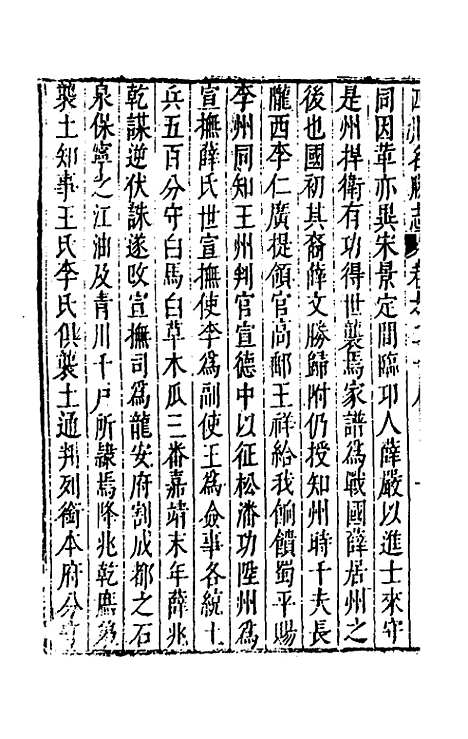 同因革亦異宋景定間臨邛人薛嚴以進士來守
是州捍衛有功得世襲焉家譜爲戰國薛居州之
後也國初其裔薛文勝歸附仍授知州時千夫長
隴西李仁廣提領官高郵王祥給我餉饋蜀平賜
李州同知王州判官宣德中以征松潘功陞州爲
宣撫薛氏世宣撫使李爲副使王爲僉事各統土
兵五百分守白馬白草木瓜三番嘉靖末年薛兆
乾謀逆伏誅遂改宣撫司爲龍安府割成都之石
泉保寧之江油及青川千戶所隷焉降兆乾
襲土知事王氏李氏俱襲土通判列銜本府分